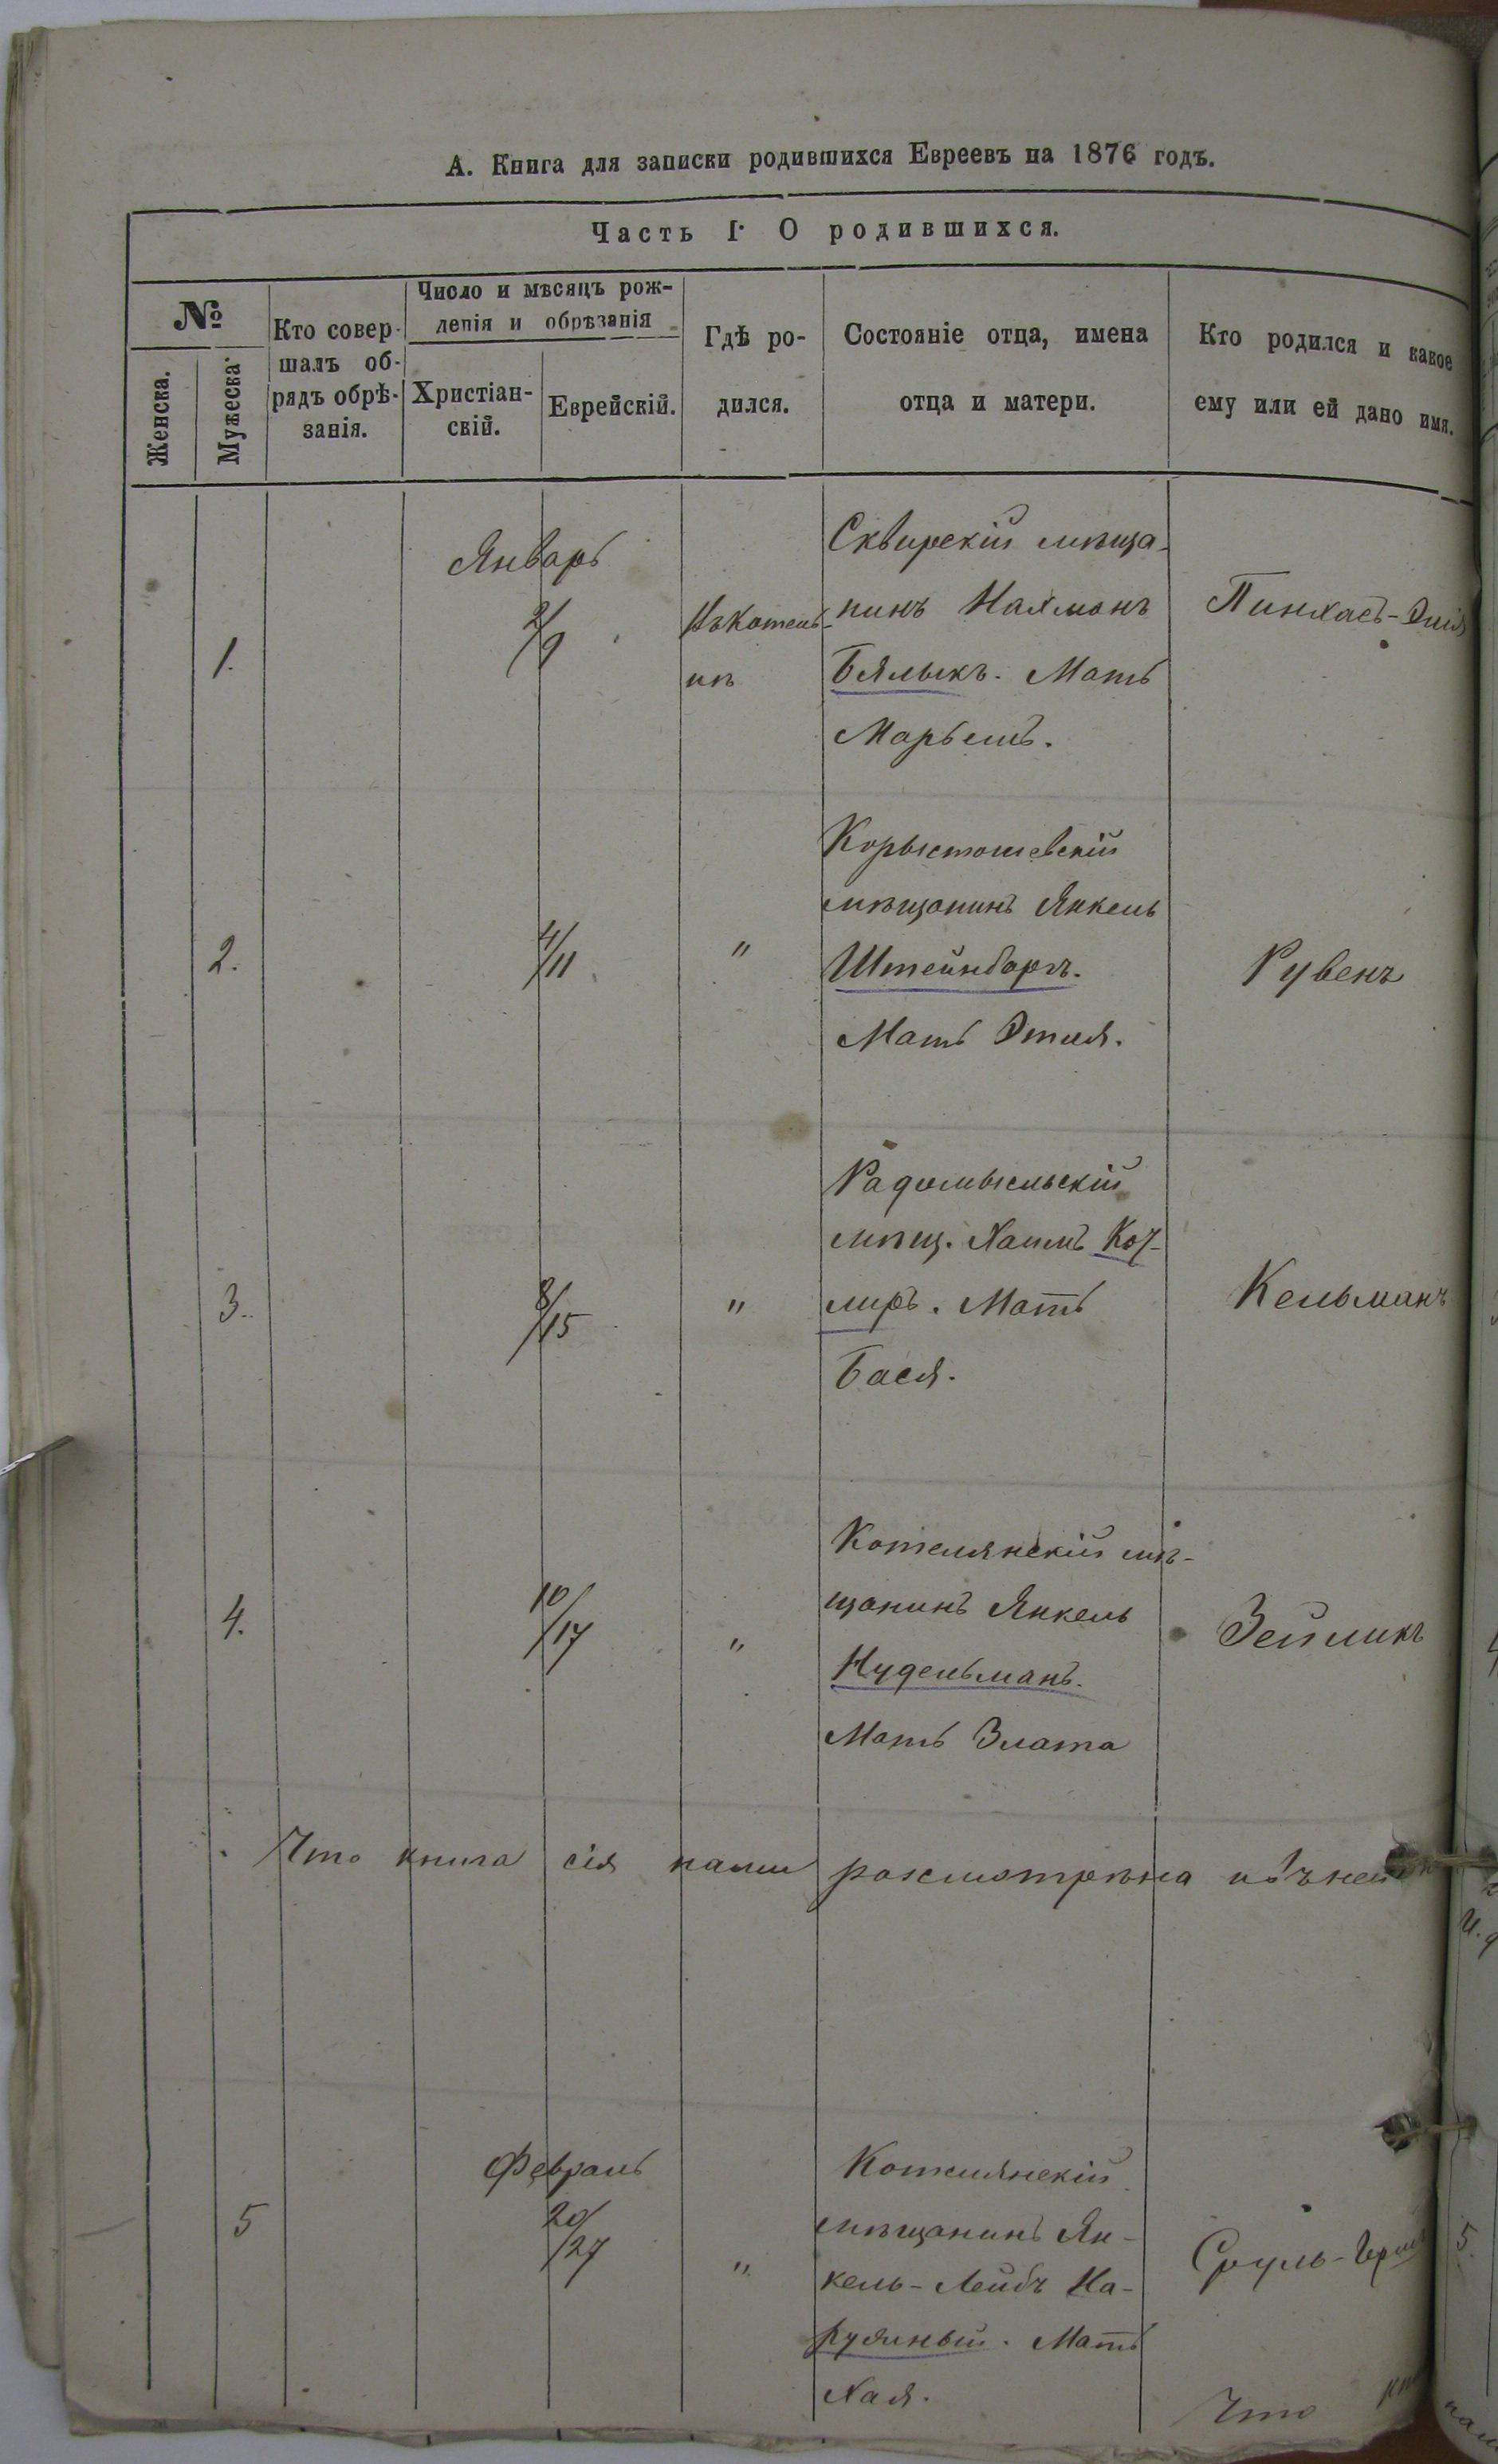 А. Книга для записки родившихся Евреевъ на 1876 годъ.
Часть I. О родившихся.
№
Женска.
Мужеска.
Кто совер-
шалъ об-
рядъ обрѣ-
занія.
Число и мѣсяцъ рож-
денія и обрѣзанія
Христіан-
скій.
Еврейскій.
Гдѣ ро-
дился.
Состояніе отца, имена
отца и матери.
Кто родился и какое
ему или ей дано имя.
Январь
1.
2/9
Въ Котель-
нѣ
Сквирскій мѣща-
нинъ Нахманъ
Бялыкъ. Мать
Марьемъ.
Пинхасъ-
2.
4/11
"
Коростошевскій
мѣщанинъ Янкель
Штейнбаргъ.
Мать Этля.
Рувенъ
3.
8/15
"
Радомысльскій
мѣщ. Хаимъ Коч-
леръ. Мать
Бася.
Кельманъ
4.
10/17
"
Котелянскій мѣ-
щанинъ Янкель
Нудельманъ.
Мать Злата
Зейликъ
Что книга сія нами разсмотрѣна
Февраль
5
20/27
"
Котелянскій
мѣщанинъ Ян-
кель-Лейбъ На-
ружный. Мать
Хая.
Сруль-Герш
Что
5.